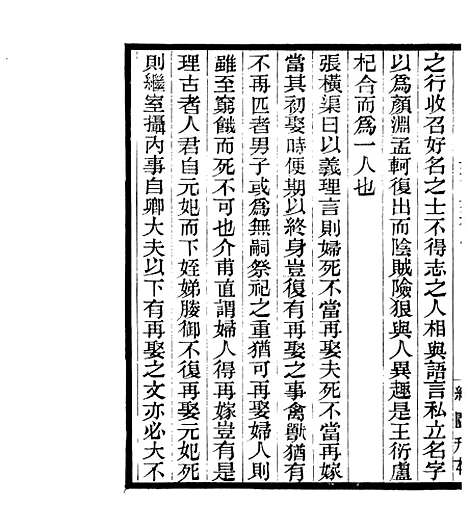 之行收召好名之士不得志之人相與語言私立名字
以爲顏淵孟軻復出而陰賊險狠與人異趣是王衍盧
杞合而爲一人也
張橫渠曰以義理言則婦死不當再娶夫死不當再嫁
當其初娶時便期以終身豈復有再娶之事禽獸猶有
不再匹者男子或爲無嗣祭祀之重猶可再娶婦人則
雖至窮餓而死不可也介甫直謂婦人得再嫁豈有是
理古者人君自元妃而下姪娣媵御不復再娶元妃死
則繼室攝內事自卿大夫以下有再娶之文亦必大不